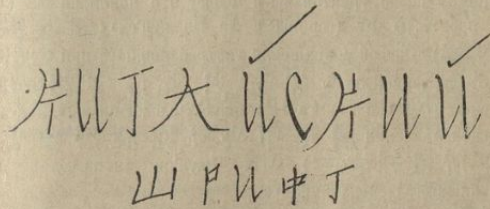 КИТАЙСКИЙ
ШРИФТ